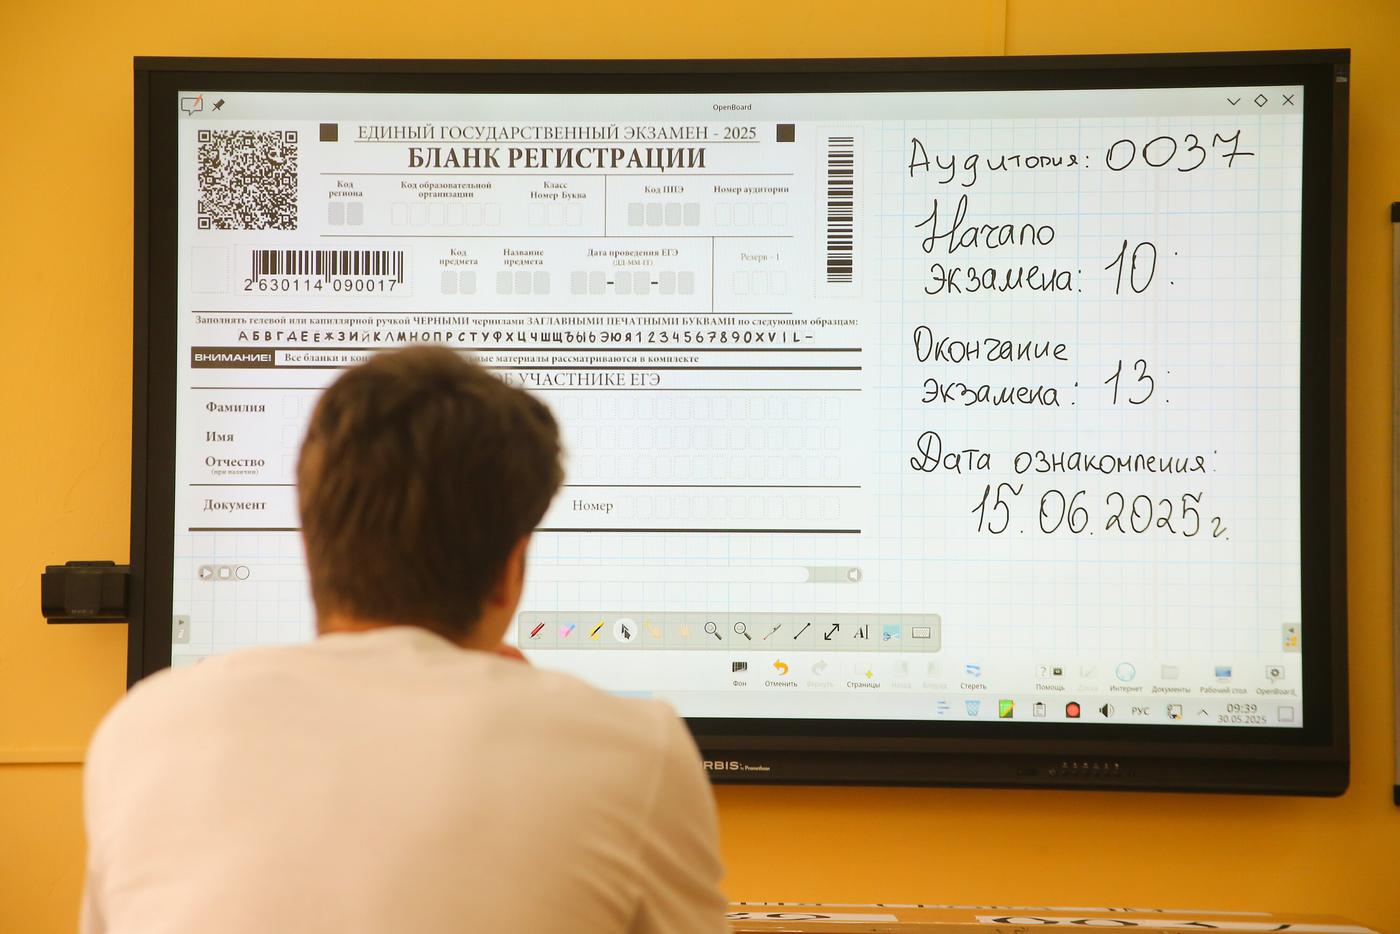 OpenBoard
ЕДИНЫЙ ГОСУДАРСТВЕННЫЙ ЭКЗАМЕН - 2025
БЛАНК РЕГИСТРАЦИИ
Код региона
Код образовательной организации
Класс
Номер Буква
Код ППЭ
Номер аудитории
2 630114 090017
Код предмета
Название предмета
Дата проведения ЕГЭ
(ДД-ММ-ГГ)
Резерв - 1
Заполнять гелевой или капиллярной ручкой ЧЕРНЫМИ чернилами ЗАГЛАВНЫМИ ПЕЧАТНЫМИ БУКВАМИ по следующим образцам:
АБВГДЕЁЖЗИЙКЛМНОПРСТУФХЦЧШЩЪЫЬЭЮЯ1234567890XVIL-
ВНИМАНИЕ!
Все бланки и материалы рассматриваются в комплекте
ОБ УЧАСТНИКЕ ЕГЭ
Фамилия
Имя
Отчество
(при наличии)
Документ
Номер
Аудитория: 0037
Начало
Экзамена: 10:
Окончание
Экзамена: 13:
Дата ознакомления:
15.06.2025г.
Фон
Отменить
Вернуть
Страницы
Назад
Вперед
Стереть
Помощь
Доска
Интернет
Документы
Рабочий стол
OpenBoard
РУС
09:39
30.05.2025
RBIS by Promethean